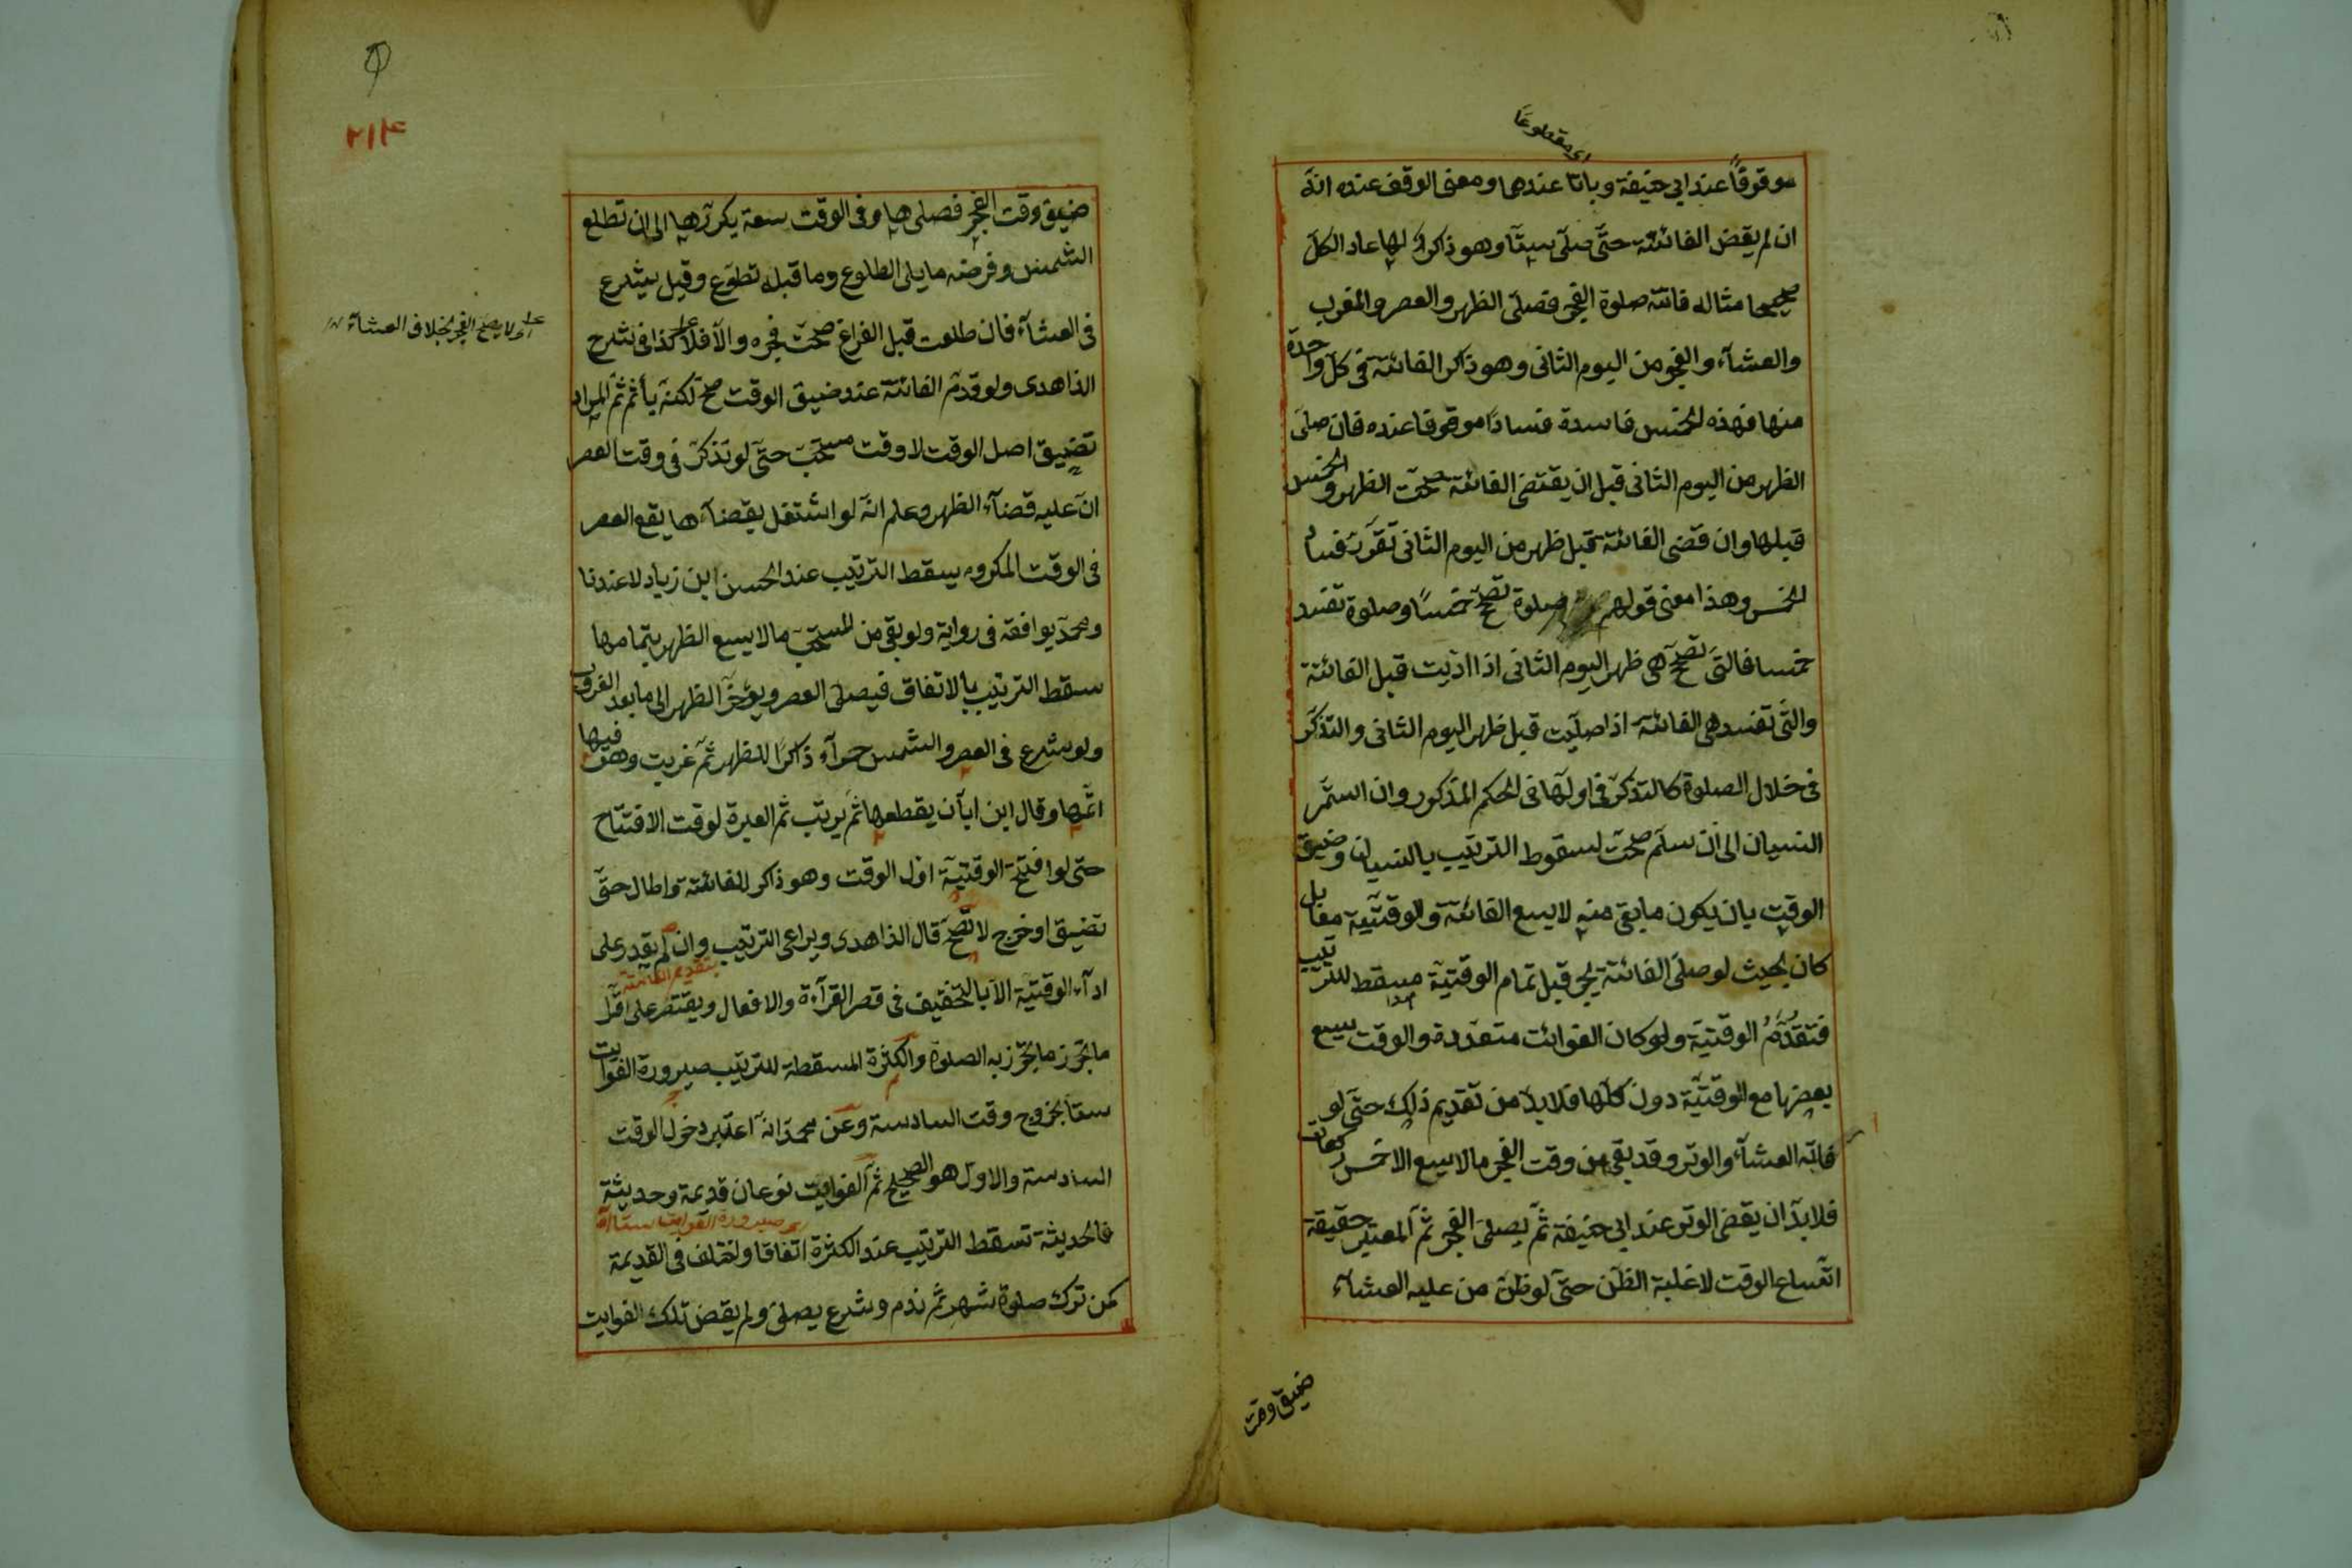 اى مقطوعا
موقوفاً عند ابي حنيفة وباتا عندهما ومعنى الوقف عنده انه
ان لم يقض الفائتة حتى صلى ستا وهو ذاكر لها عاد الكل
صحيحا مثاله فاتته صلوة الفجر فصلى الظهر والعصر والمغرب
والعشاء والفجر من اليوم الثانى وهو ذاكر الفائتة فى كل واحدة
منها فهذه الخمس فاسدة فسادا موقوفا عنده فان صلى
الظهر من اليوم الثانى قبل ان يقتضى الفائتة صحت الظهر والخمس
قبلها وان قضى الفائتة قبل ظهر من اليوم الثانى تقرر فساد
الخمس وهذا معنى قولهم صلوة تصح خمسا وصلوة تفسد
خمسا فالتى تصح هى ظهر اليوم الثانى اذا اديت قبل الفائتة
والتى تفسد هى الفائتة اذا صليت قبل ظهر اليوم الثانى والتذكر
فى خلال الصلوة كالتذكر فى اولها فى الحكم المذكور وان استمر
النسيان الى ان سلم صحت لسقوط الترتيب بالنسيان وضيق
الوقت بان يكون ما بقى منه لا يسع الفائتة والوقتية معا بل
كان بحيث لو صلى الفائتة يخرج قبل تمام الوقتية مسقط للترتيب
فتقدم الوقتية ولو كان الفوائت متعددة والوقت يسع
بعضها مع الوقتية دون كلها فلا بد من تقديم ذلك حتى لو
فاتته العشاء والوتر وقد بقى من وقت الفجر ما لا يسع الا خمس ركعات
فلا بد ان يقضى الوتر عند ابي حنيفة ثم يصلى الفجر ثم المعتبر حقيقة
اتساع الوقت لا غلبة الظن حتى لو ظن من عليه العشاء
ضيق وقت
٢١٤
ضيق وقت الفجر فصلى ها وفى الوقت سعة يكررها الى ان تطلع
الشمس وفرضه ما يلى الطلوع وما قبله تطوع وقيل يشرع
فى العشاء فان طلعت قبل الفراغ صحت فجره والا فلا كذا فى شرح
اى لا يصح الفجر بخلاف العشاء
الزاهدى ولو قدم الفائتة عند ضيق الوقت صح لكنه يأثم ثم المراد
تضيق اصل الوقت لا وقت مستحب حتى لو تذكر فى وقت العصر
ان عليه قضاء الظهر وعلم انه لو اشتغل بقضاءها يقع العصر
فى الوقت المكروه يسقط الترتيب عند الحسن ابن زياد لا عندنا
ومحمد يوافقه فى رواية ولو بقى من المستحب ما لا يسع الظهر بتمامها
سقط الترتيب بالاتفاق فيصلى العصر ويؤخر الظهر الى ما بعد الغروب
ولو شرع فى العصر والشمس حمراء ذاكرا للظهر ثم غربت وهو فيها
اتمها وقال ابن ابان يقطعها ثم يرتب ثم العبرة لوقت الافتتاح
حتى لو افتتح الوقتية اول الوقت وهو ذاكر للفائتة واطال حتى
تضيق او خرج لا تصح قال الزاهدى ويراعى الترتيب وان لم يقدر على
بتقديم الفائتة
اداء الوقتية الا بالتخفيف فى قصر القرآءة والافعال ويقتصر على اقل
ما تجوز به الصلوة والكثرة المسقطة للترتيب صيرورة الفوايت
ستا بخروج وقت السادسة وعن محمد انه اعتبر دخول الوقت
السادسة والاول هو الصحيح ثم الفوايت نوعان قديمة وحديثة
صيرورة الفوايت ستا
فالحديثة تسقط الترتيب عند الكثرة اتفاقا واختلف فى القديمة
كمن ترك صلوة شهر ثم ندم وشرع يصلى ولم يقض تلك الفوايت